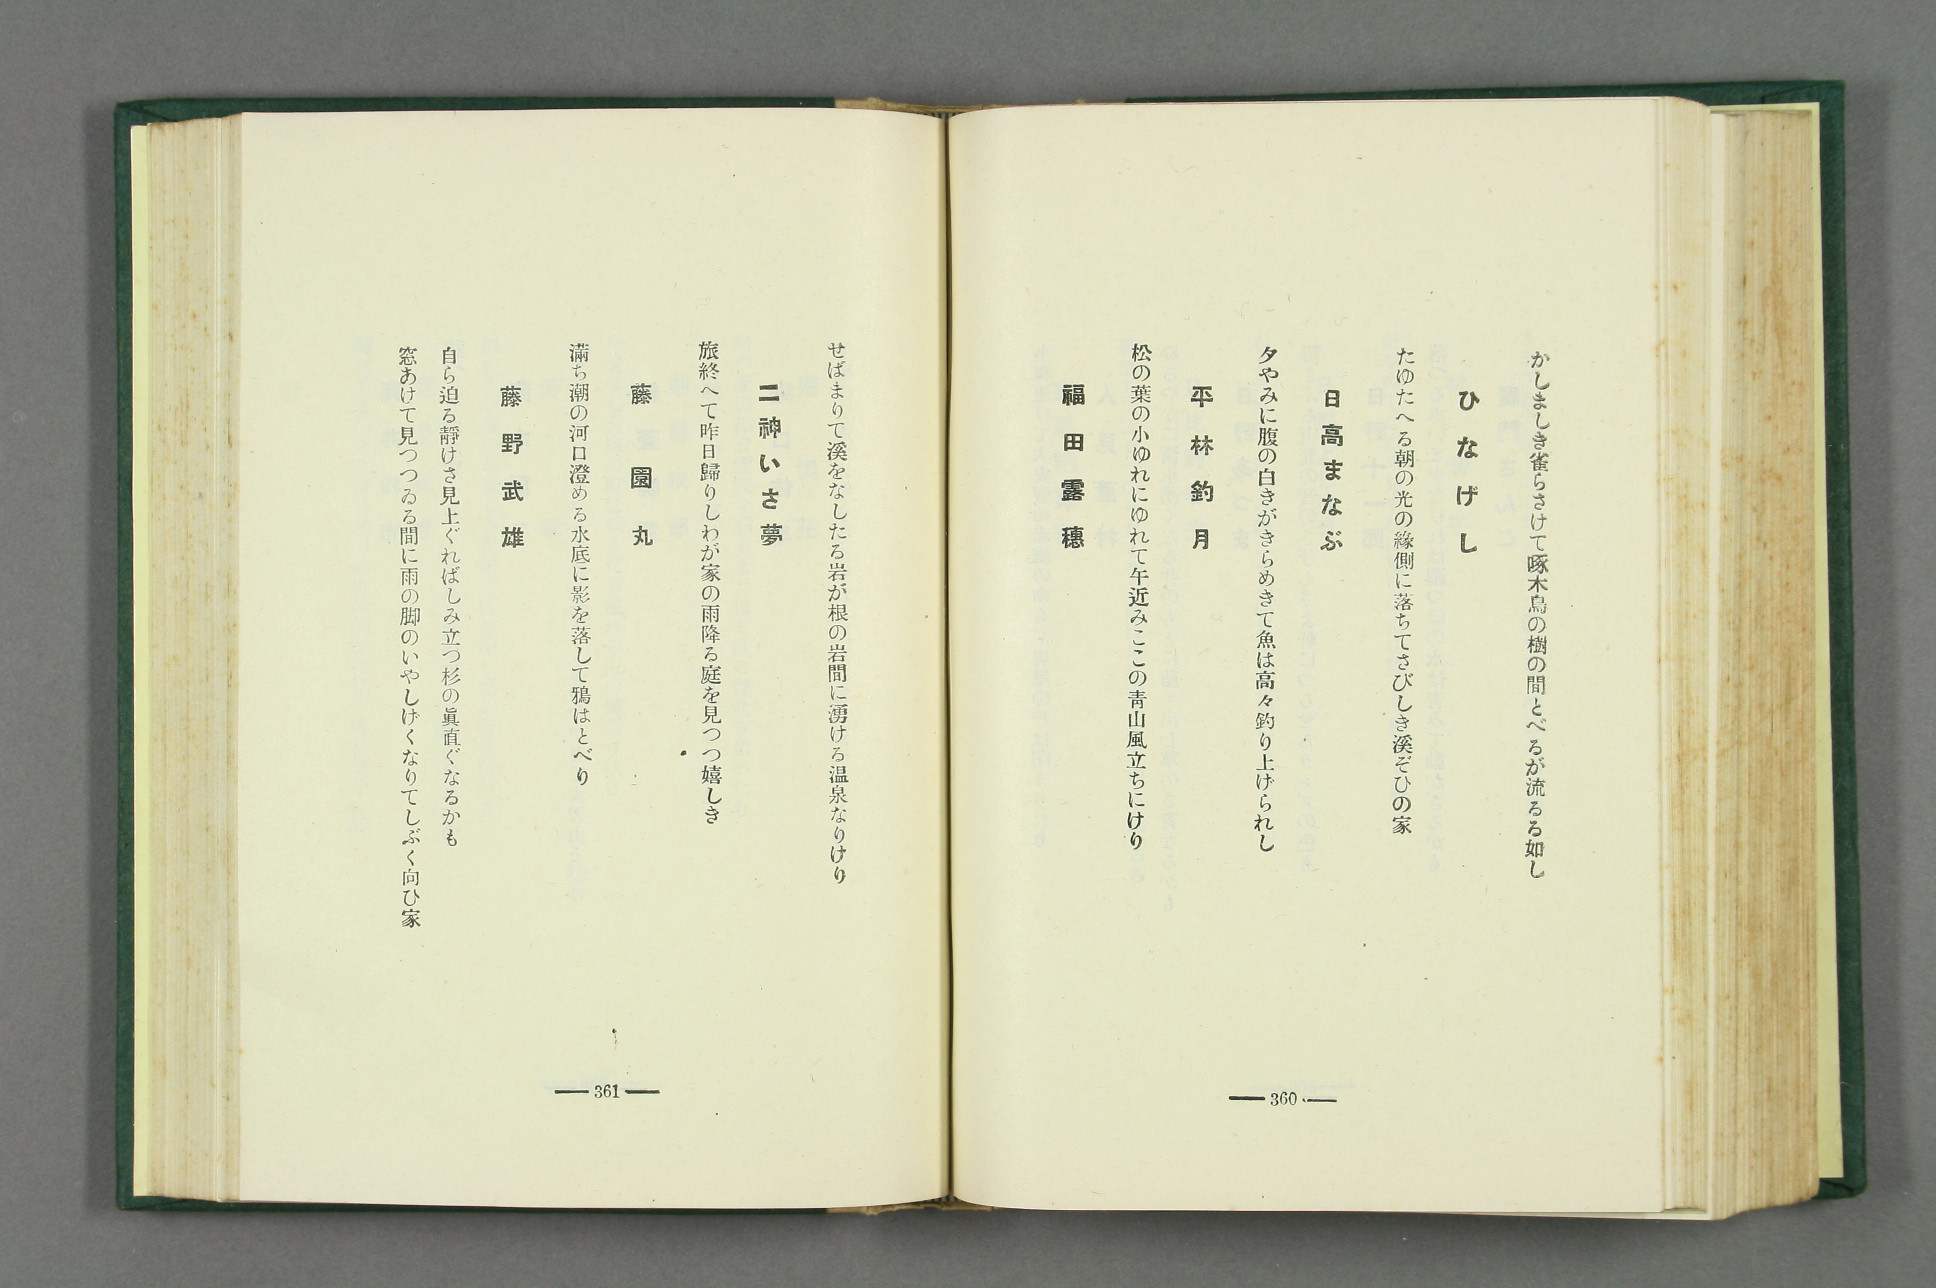 かしましき雀らさけて啄木鳥の樹の間とべるが流るる如し
ひなげし
たゆたへる朝の光の緣側に落ちてさびしき溪ぞひの家
日高まなぶ
夕やみに腹の白きがきらめきて魚は高々釣り上げられし
平林釣月
松の葉の小ゆれにゆれて午近みここの靑山風立ちにけり
福田露穗
360
せばまりて溪をなしたる岩が根の岩間に湧ける温泉なりけり
二神いさ夢
旅終へて昨日歸りしわが家の雨降る庭を見つつ嬉しき
藤園丸
滿ち潮の河口澄める水底に影を落して鴉はとべり
藤野武雄
自ら迫る靜けさ見上ぐればしみ立つ杉の眞直ぐなるかも
窓あけて見つつゐる間に雨の脚のいやしげくなりてしぶく向ひ家
361